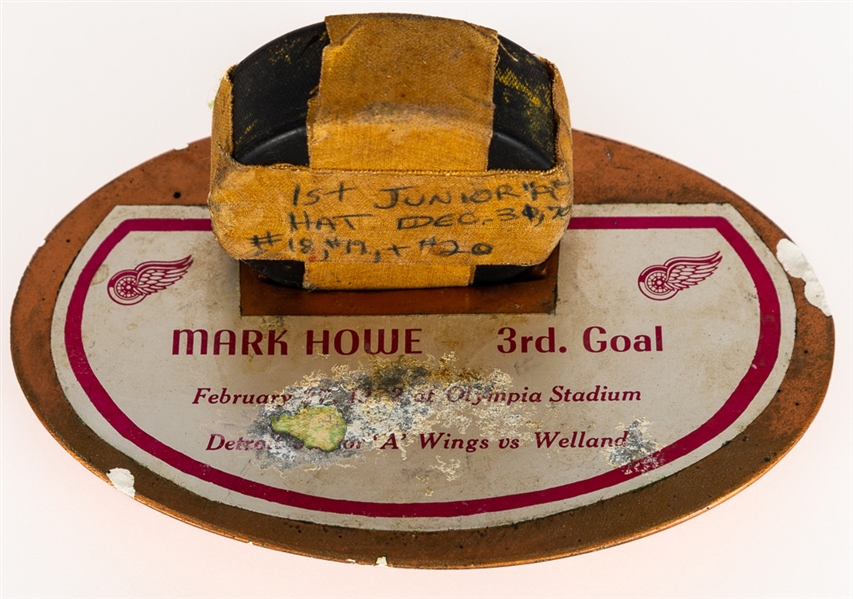 1st JUNIOR "A"
HAT DEC.
#18, #19, + #20
MARK HOWE 3rd. Goal
February at Olympia Stadium
'A' Wings vs Welland